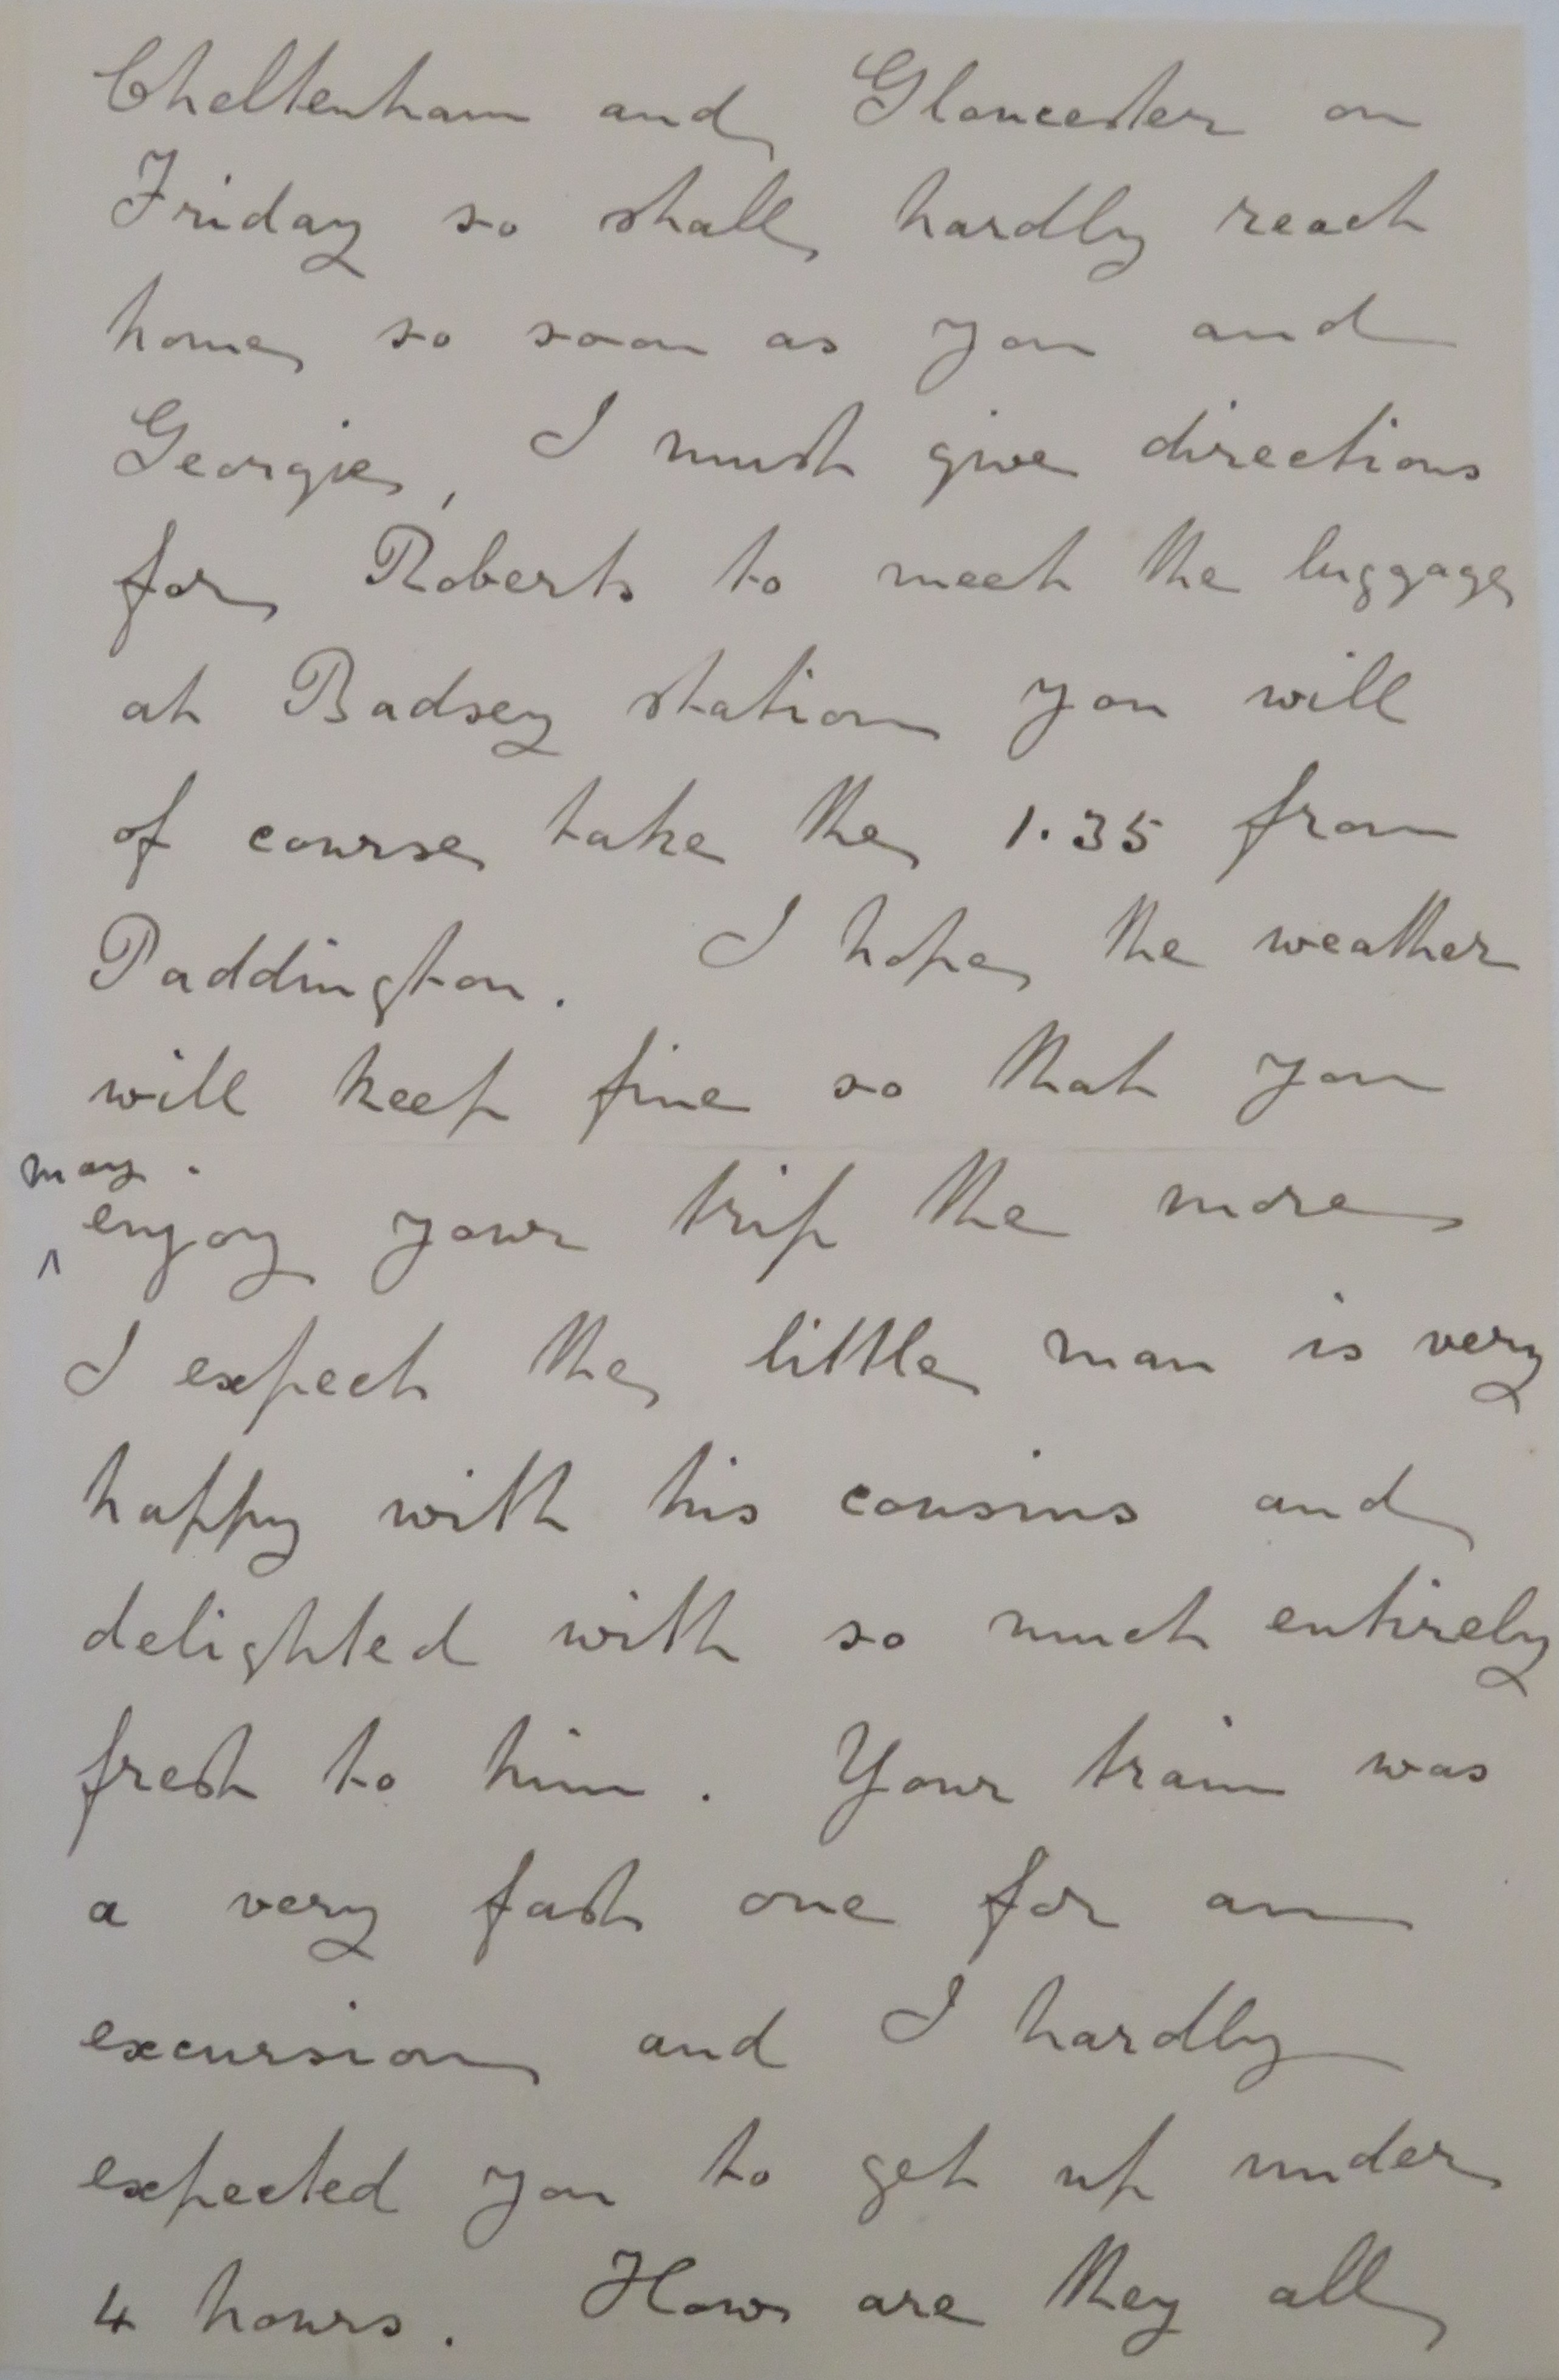 Cheltenham and Gloucester on
Friday so shall hardly reach
home so soon as you and
Georgie, I must give directions
for Roberts to meet the luggage
at Badsey station you will
of course take the 1.35 from
Paddington. I hope the weather
will keep fine so that you
may
^ enjoy your trip the more
I expect the little man is very
happy with his cousins and
delighted with so much entirely
fresh to him. Your train was
a very fast one for an
excursion and I hardly
expected you to get up under
4 hours. How are they all